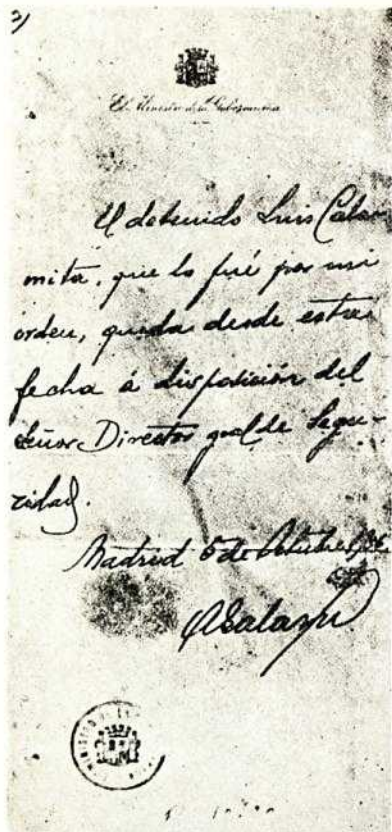 El Ministro de la Gobernación
El detenido Luis Cala-
mita, que lo fué por mi
orden, queda desde esta
fecha á disposición del
Señor Director gral de Segu-
ridad.
Madrid 5 de Octubre/36